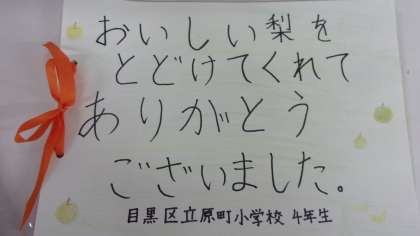 おいしい梨を
とどけてくれて
ありがとう
ございました。
目黒区立原町小学校 4年生